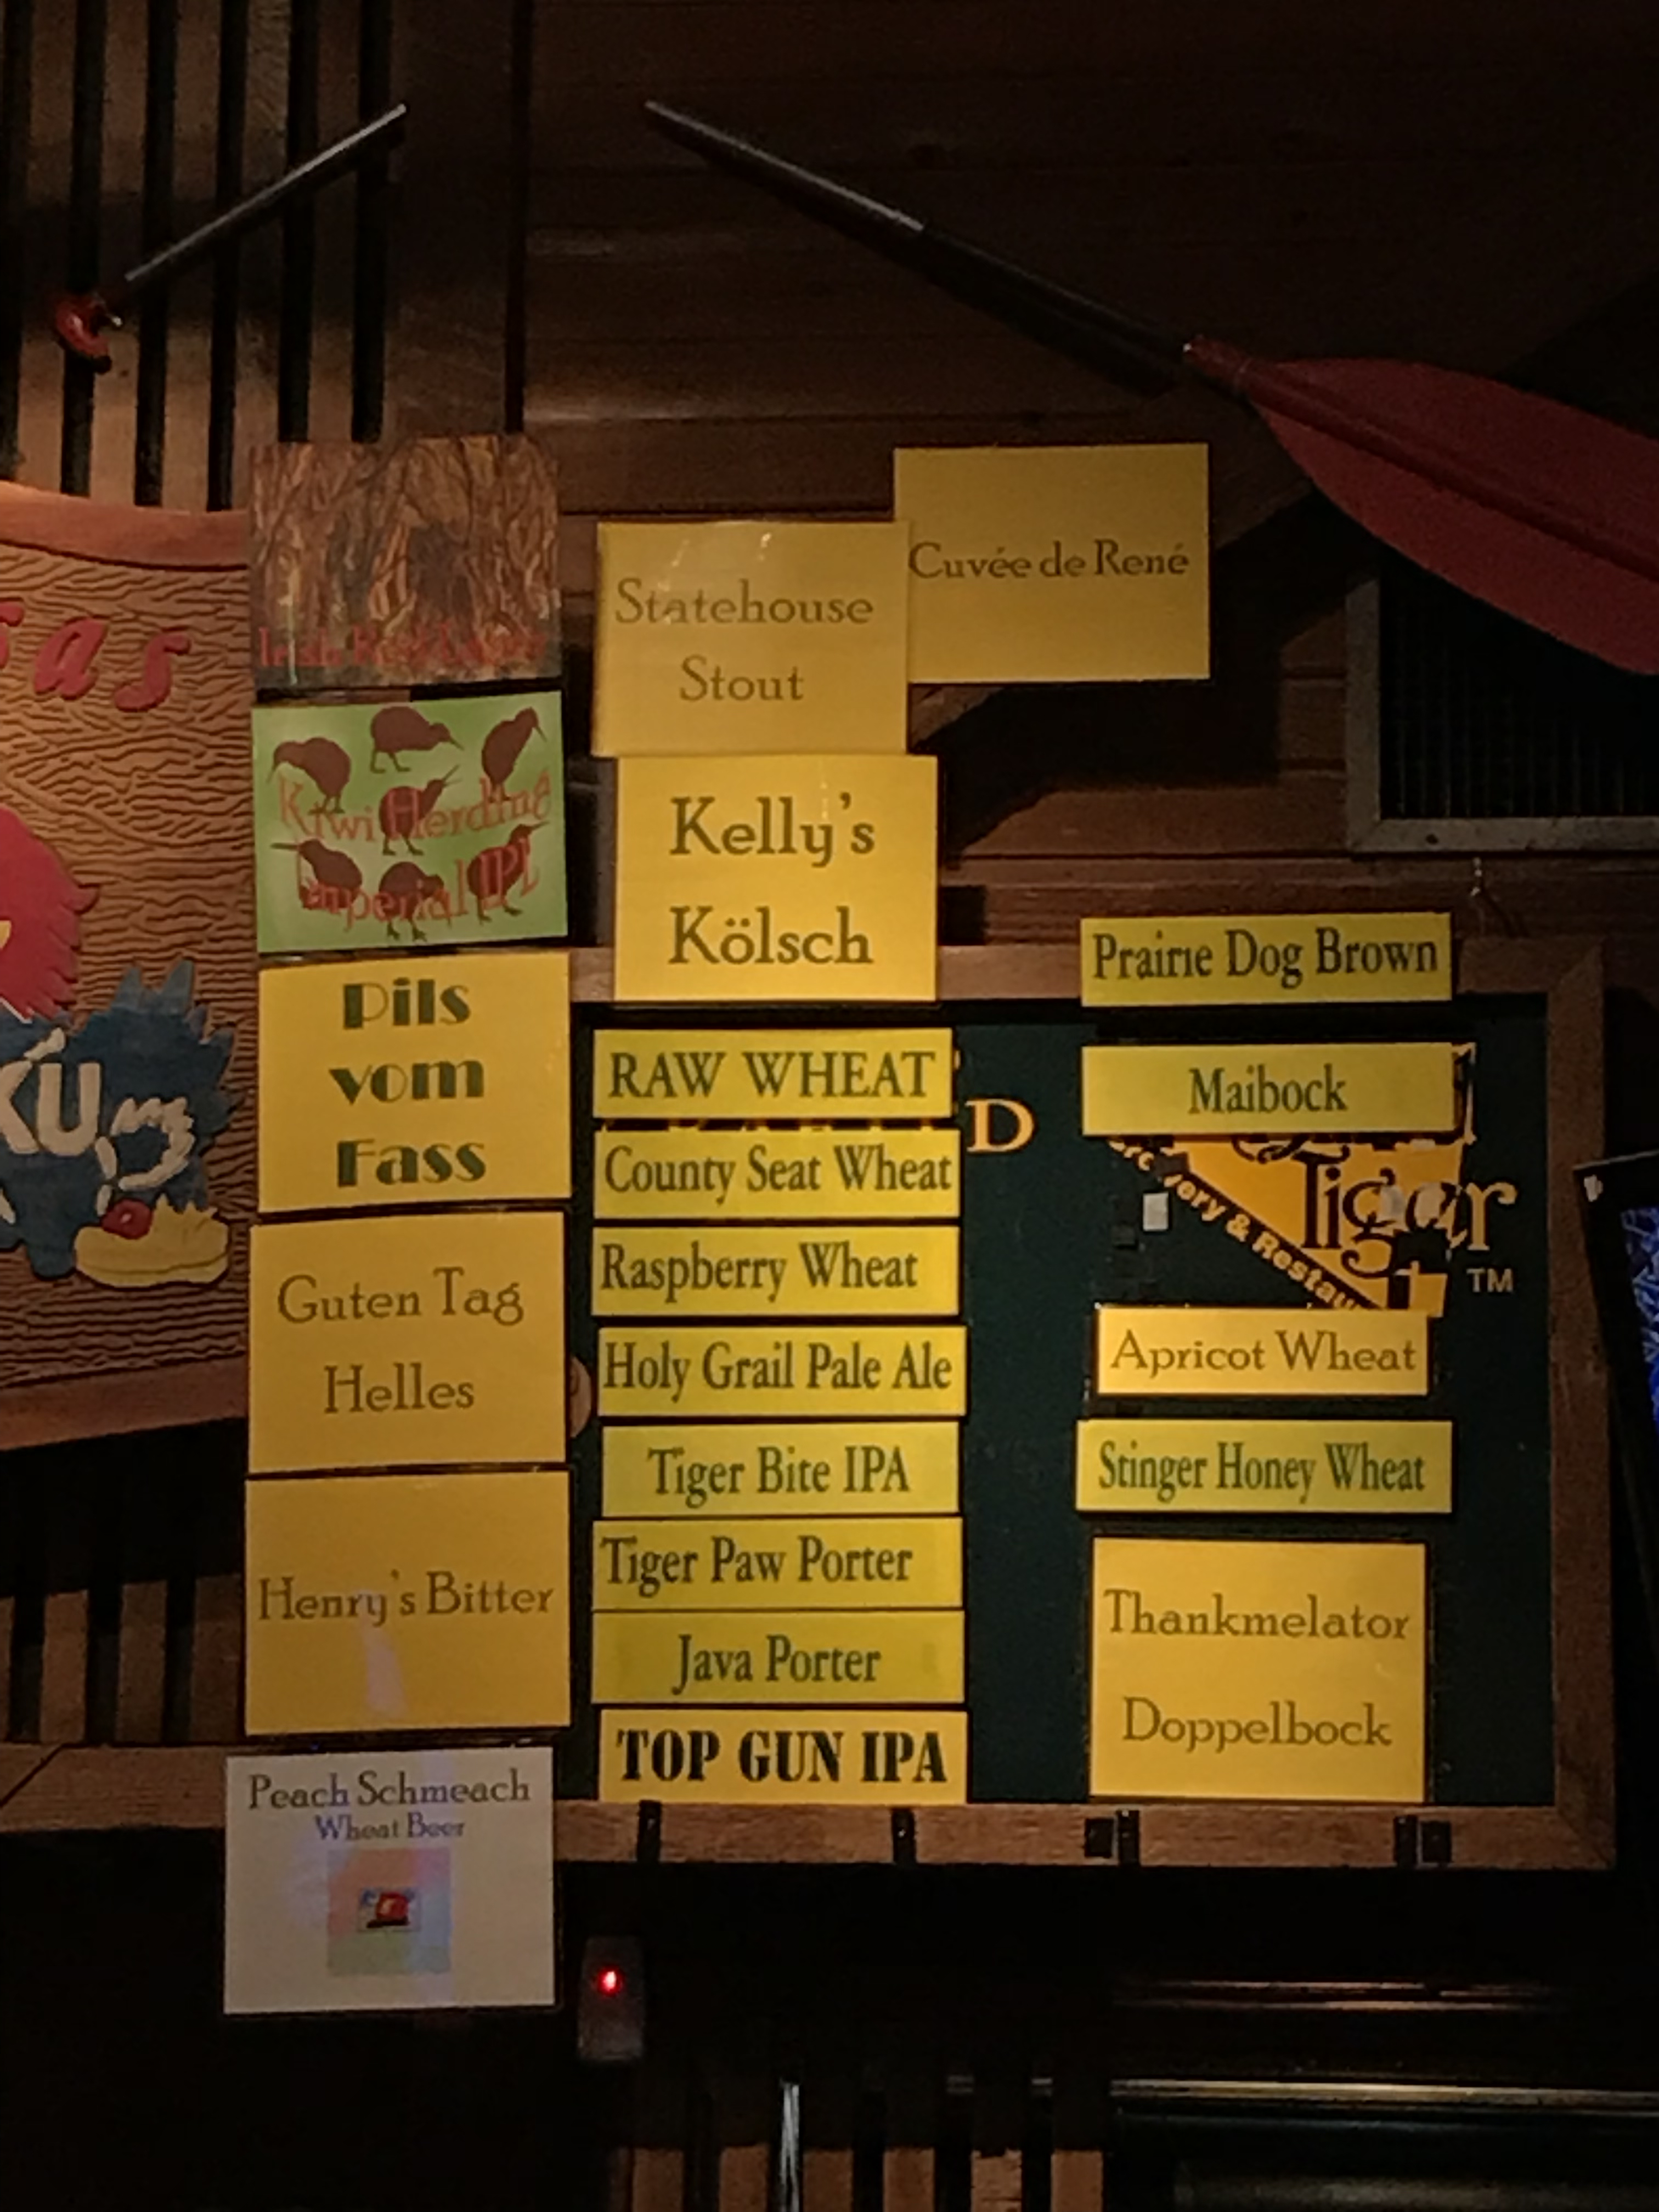 sas
KU
Kiwi Herding
Imperial IPL
Pils
vom
Fass
Guten Tag
Helles
Henry's Bitter
Peach Schmeach
Wheat Beer
Statehouse
Stout
Cuvée de René
Kelly's
Kölsch
RAW WHEAT
County Seat Wheat
Raspberry Wheat
Holy Grail Pale Ale
Tiger Bite IPA
Tiger Paw Porter
Java Porter
TOP GUN IPA
D
Prairie Dog Brown
Maibock
Tiger
TM
& Restau
Apricot Wheat
Stinger Honey Wheat
Thankmelator
Doppelbock